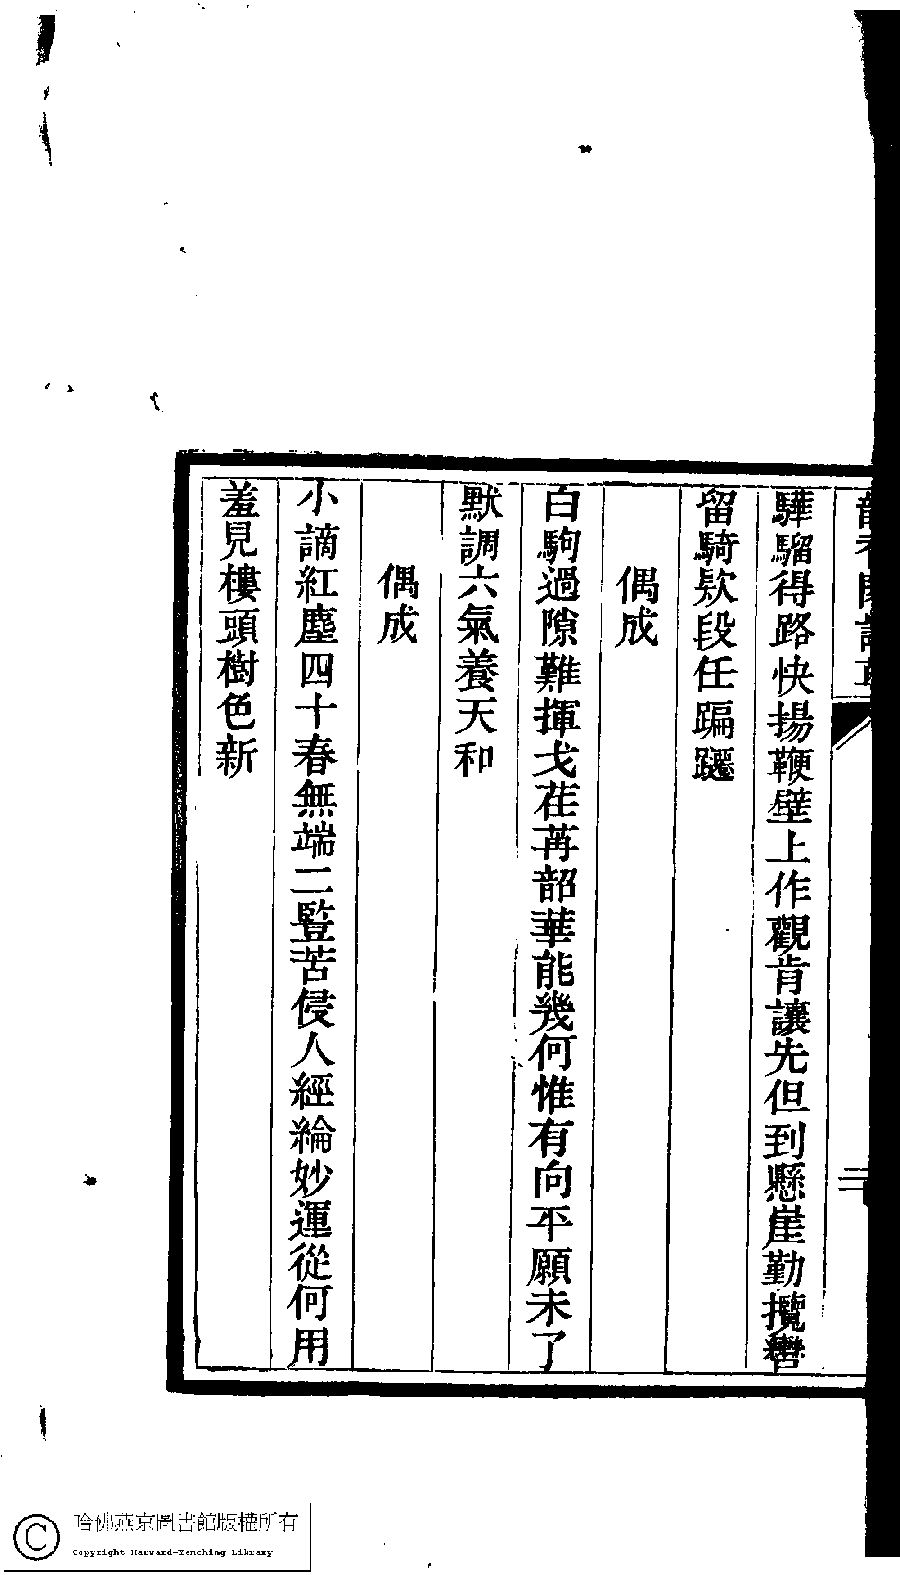 驊騮得路快揚鞭壁上作觀肯讓先但到懸崖勤攬轡
留騎欵段任蹁躚
偶成
白駒過隙難揮戈荏苒韶華能幾何惟有向平願未了
默調六氣養天和
偶成
小謫紅塵四十春無端二豎苦侵人經綸妙運從何用
羞見樓頭樹色新
二
哈佛燕京圖書館版權所有
Copyright Harvard-Yenching Library